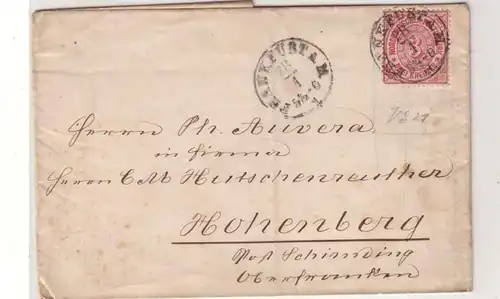 FRANKFURT A. M.
28
1
FRANKFURT A. M.
Herrn Ph. Auvera
in Firma
Herren C M Hutschenreuther
Hohenberg
Post Schirnding
Oberfranken